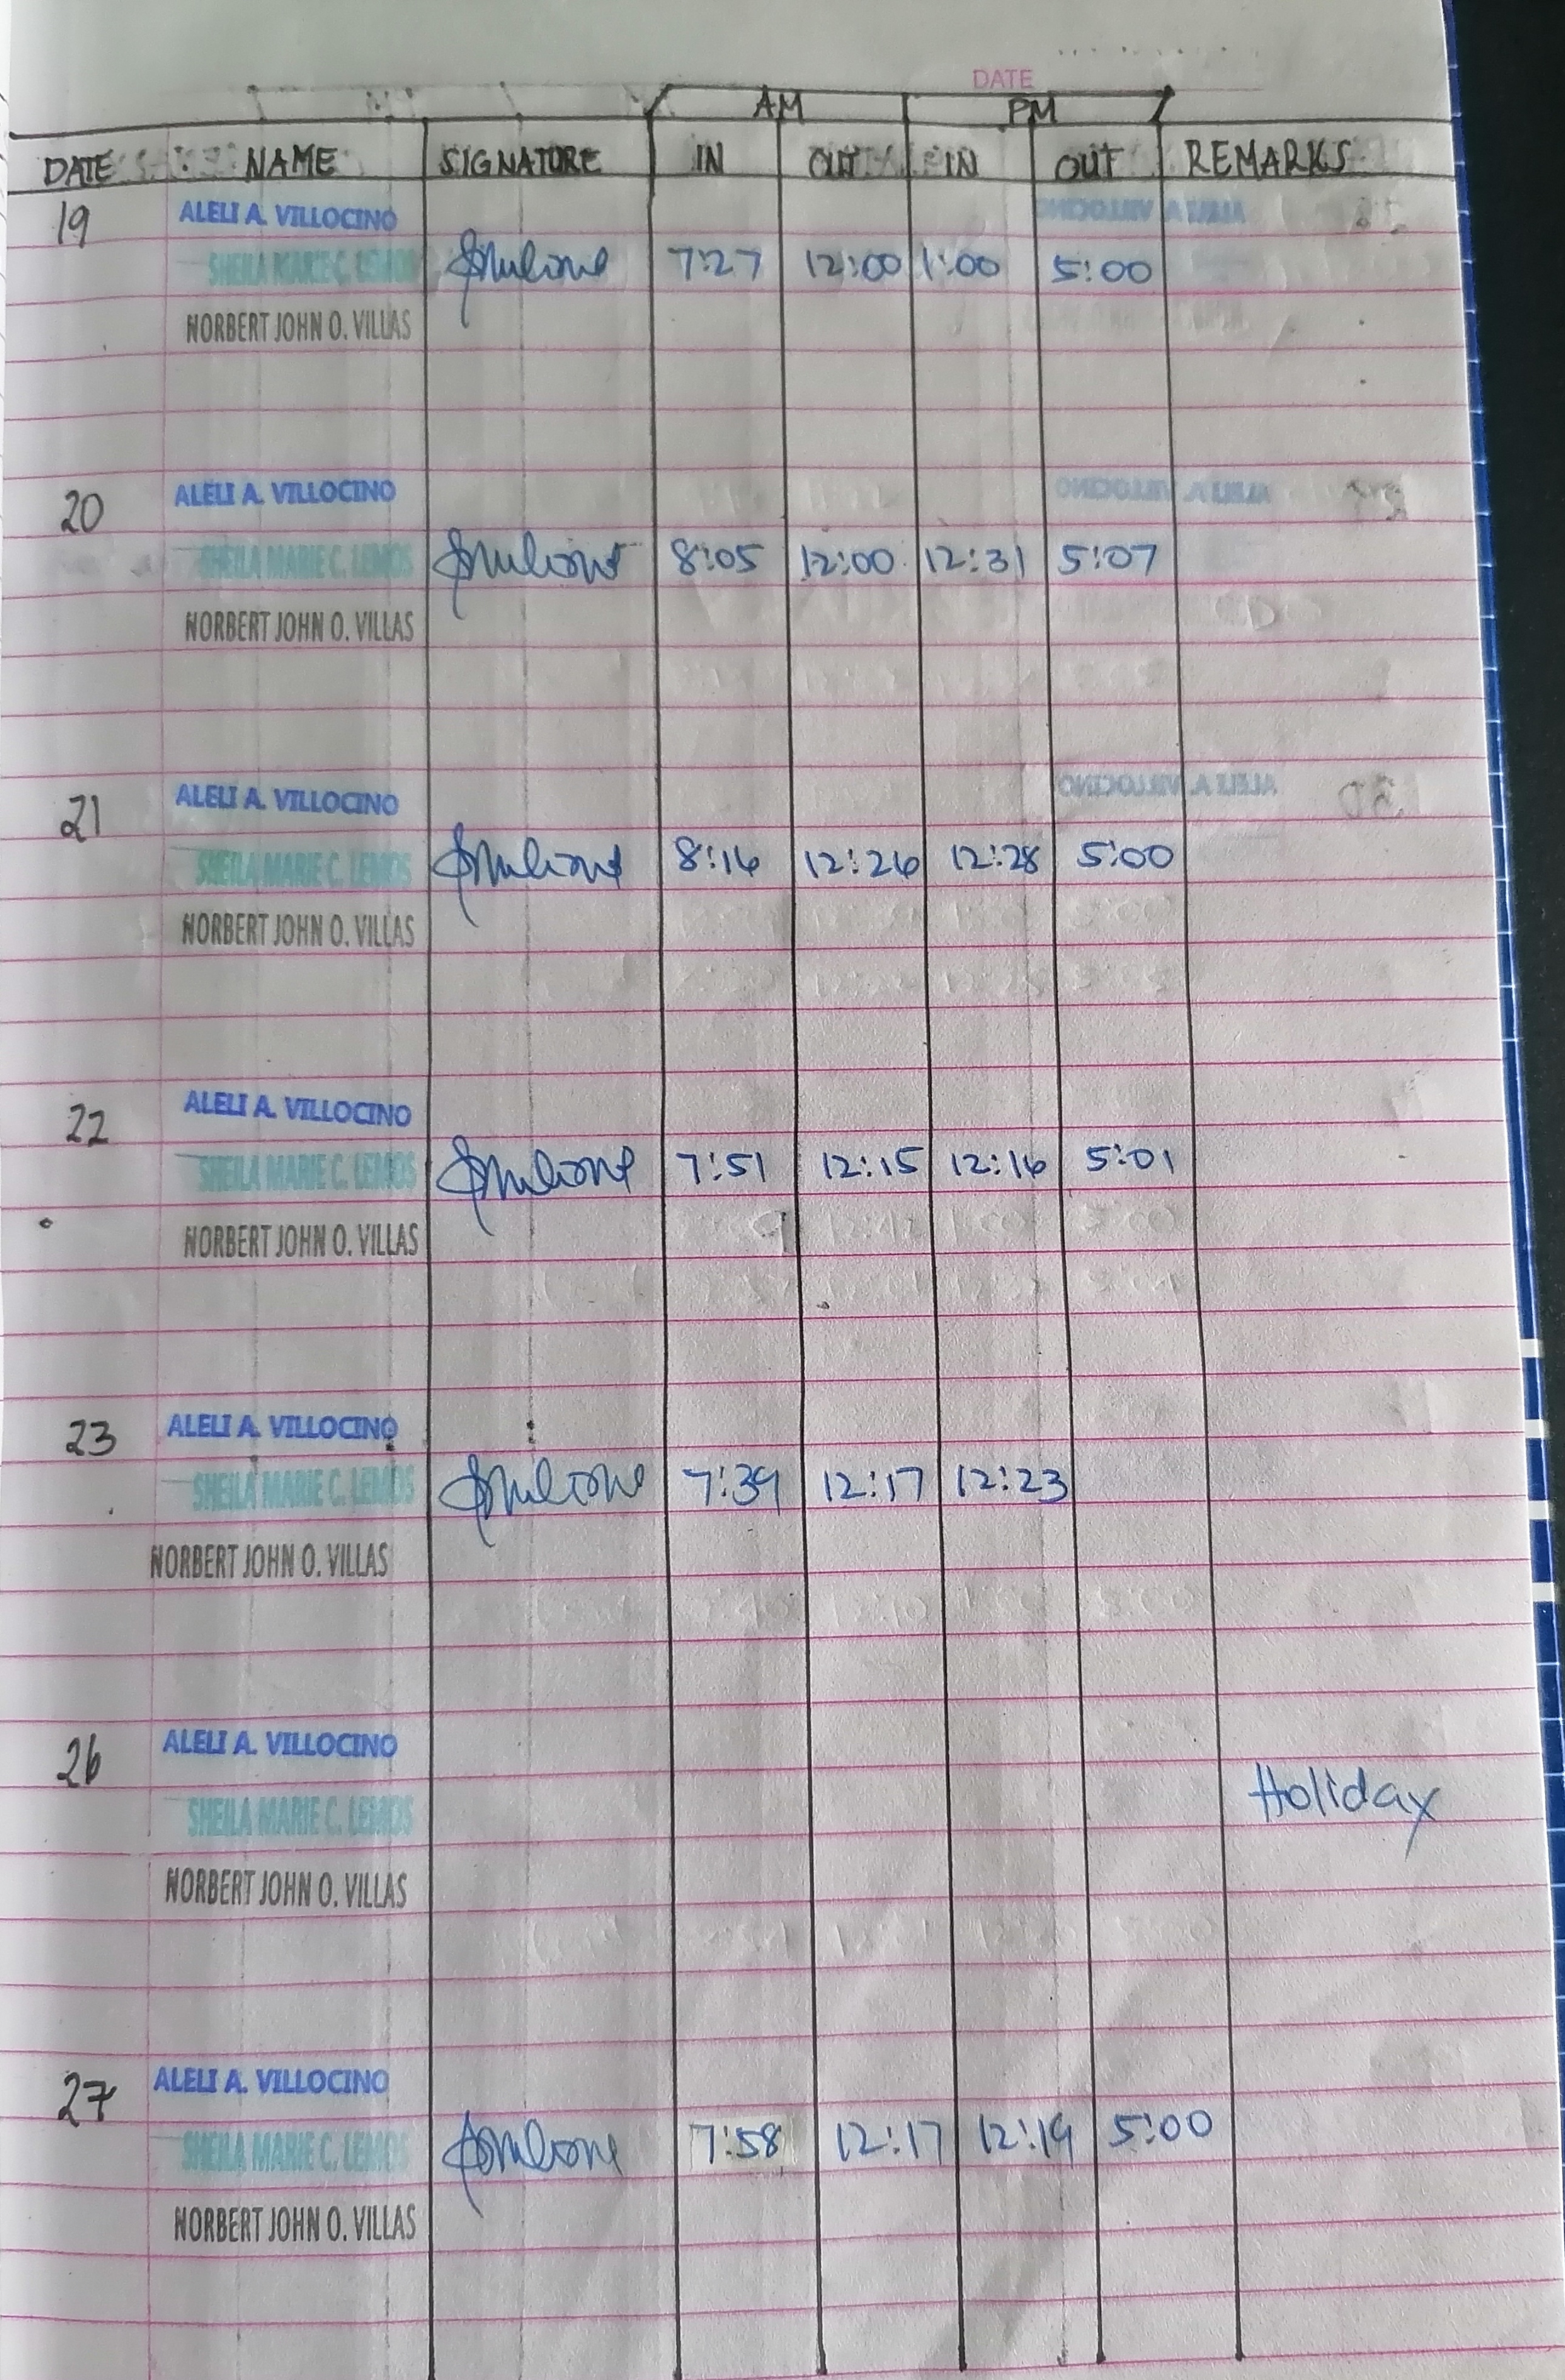 DATE
AM PM
DATE NAME SIGNATURE IN OUT IN OUT REMARKS
19 ALELI A. VILLOCINO
SHEILA MARIE C. LEMOS 7:27 12:00 1:00 5:00
NORBERT JOHN O. VILLAS
20 ALELI A. VILLOCINO
SHEILA MARIE C. LEMOS 8:05 12:00 12:31 5:07
NORBERT JOHN O. VILLAS
21 ALELI A. VILLOCINO
SHEILA MARIE C. LEMOS 8:16 12:26 12:28 5:00
NORBERT JOHN O. VILLAS
22 ALELI A. VILLOCINO
SHEILA MARIE C. LEMOS 7:51 12:15 12:16 5:01
NORBERT JOHN O. VILLAS
23 ALELI A. VILLOCINO
SHEILA MARIE C. LEMOS 7:39 12:17 12:23
NORBERT JOHN O. VILLAS
26 ALELI A. VILLOCINO
SHEILA MARIE C. LEMOS Holiday
NORBERT JOHN O. VILLAS
27 ALELI A. VILLOCINO
SHEILA MARIE C. LEMOS 7:58 12:17 12:19 5:00
NORBERT JOHN O. VILLAS